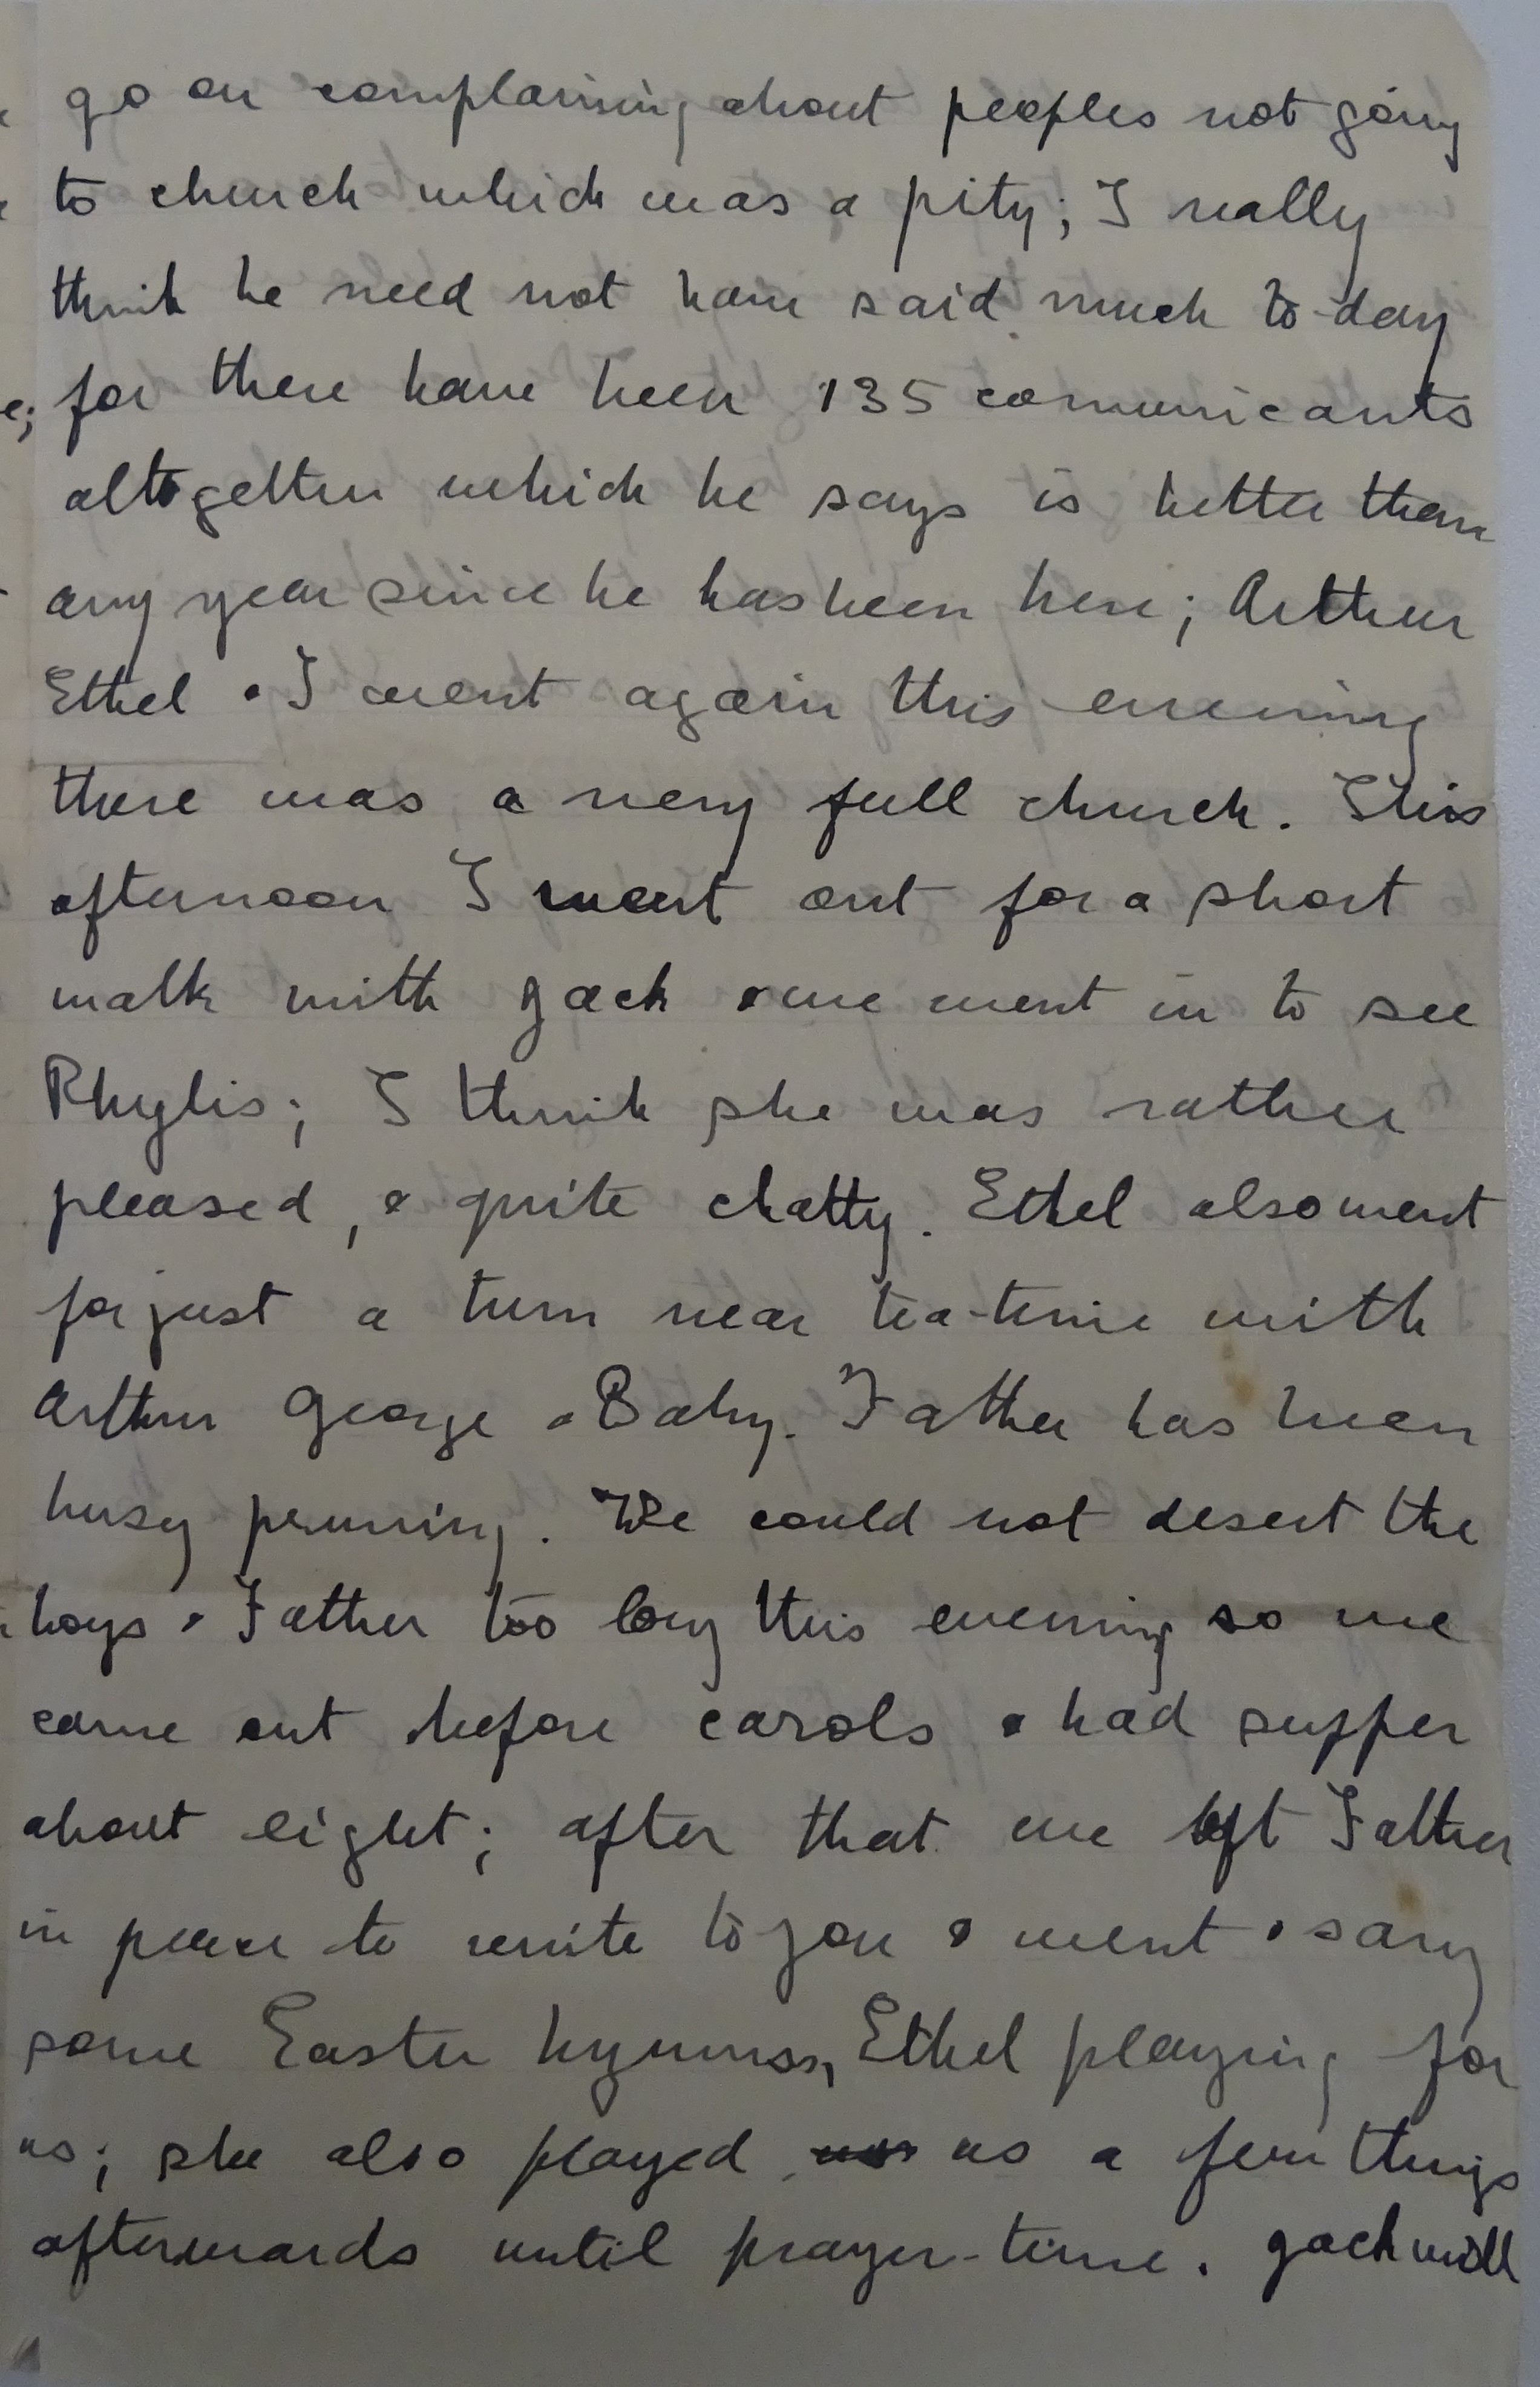 go on complaining about peoples not going
to church which was a pity; I really
think he need not have said much to-day
for there have been 135 comunicants
altogether which he says is better than
any year since he has been here; Arthur
Ethel & I went again this evening
there was a very full church. This
afternoon I went out for a short
walk with Jack & we went in to see
Phylis; I think she was rather
pleased, & quite chatty. Ethel also went
for just a turn near tea-time with
Arthur George & Baby. Father has been
busy pruning. We could not desert the
boys & Father too long this evening so we
came out before carols & had supper
about eight; after that we left Father
in peace to write to you & went & sang
some Easter hymns, Ethel playing for
us; she also played us a few things
afterwards until prayer-time. Jack will